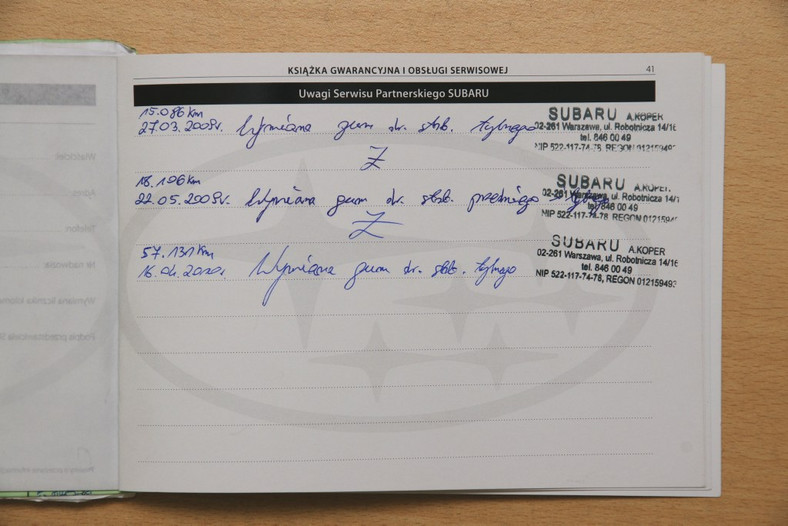 KSIĄŻKA GWARANCYJNA I OBSŁUGI SERWISOWEJ 41
Uwagi Serwisu Partnerskiego SUBARU
15.086 km
27.03.2009r. Wymiana gum dr. stab. tylnego
SUBARU A.KOPER
02-261 Warszawa, ul. Robotnicza 14/16
tel. 846 00 49
NIP 522-117-74-78, REGON 01215949
Z
18.196 km
22.05.2009r. Wymiana gum dr. stab. przedniego
SUBARU A.KOPER
02-261 Warszawa, ul. Robotnicza 14/1
tel. 846 00 49
NIP 522-117-74-78 REGON 0121594
Z
57.131 km
16.04.2010r. Wymiana gum dr. stab. tylnego
SUBARU A.KOPER
02-261 Warszawa, ul. Robotnicza 14/16
tel. 846 00 49
NIP 522-117-74-78, REGON 012159493